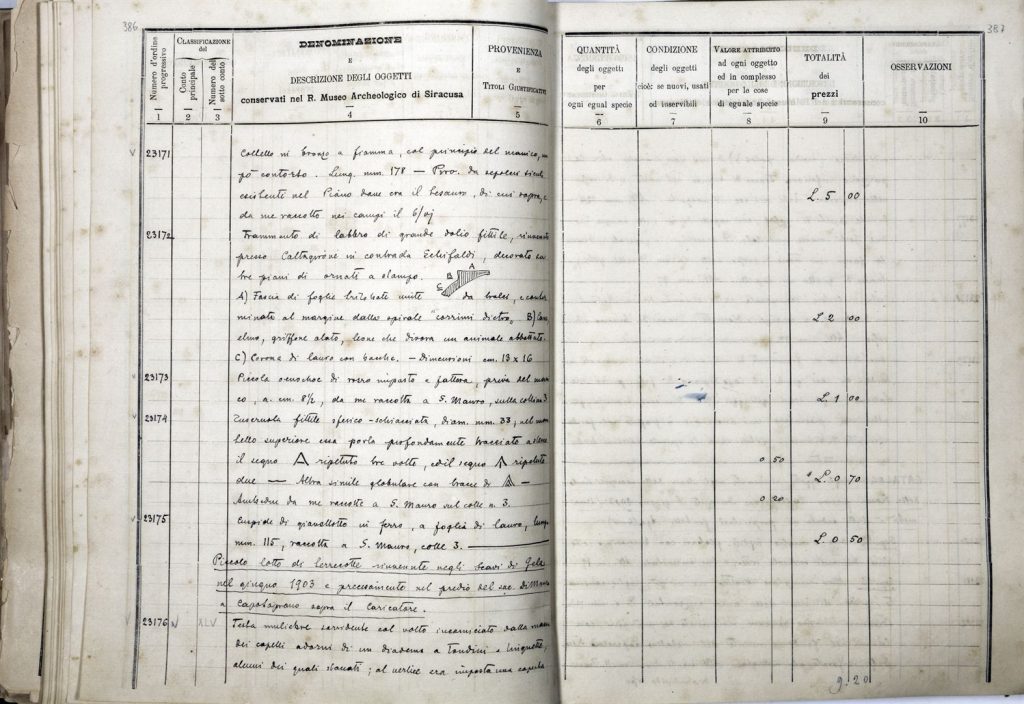 386
387
Numero d'ordine progressivo
CLASSIFICAZIONE del
Conto principale
Numero del sotto conto
DENOMINAZIONE
E
DESCRIZIONE DEGLI OGGETTI
conservati nel R. Museo Archeologico di Siracusa
PROVENIENZA
E
TITOLI GIUSTIFICATIVI
QUANTITÀ
degli oggetti
per
ogni egual specie
CONDIZIONE
degli oggetti
cioè: se nuovi, usati
od inservibili
VALORE ATTRIBUITO
ad ogni oggetto
ed in complesso
per le cose
di eguale specie
TOTALITÀ
dei
prezzi
OSSERVAZIONI
1 2 3 4 5 6 7 8 9 10
v 23171 Coltello in bronzo a fiamma, col principio del manico, un
pò contorto. Lung. mm. 178 — Prov. da sepolcri siculi
esistente nel Piano dove era il tesauro, di cui sopra, e
da me raccolto nei campi il 6/
L. 5 00
23172 Frammento di labbro di grande dolio fittile, rinvenuto
presso Caltagirone in contrada, decorato su
tre piani di ornati a stampo. A B C
A) Fascia di foglie trilobate unite da tralci, e
minato al margine dalla spirale "corrimi dietro„ B)
griffone alato, leone che divora un animale abbattuto.
C) Corona di lauro con bacche. — dimensioni cm. 13 x 16
L. 2 00
v 23173 Piccola oenochoe di rozzo impasto e fattura, priva del mani
co, a. cm. 8½, da me raccolta a S. Mauro, sulla collina 3
L. 1 00
v 23174 Fuseruola fittile sferico-schiacciata, diam. mm. 33; nel
superiore essa porta profondamente tracciato a
il segno A ripetuto tre volte, ed il segno ripetuto
0 50
due — Altra simile globulare con tracce di —
L. 0 70
Ambedue da me raccolte a S. Mauro sul colle n. 3.
0 20
v 23175 Cuspide di giavellotto in ferro, a foglia di lauro, lunga
mm. 115, raccolta a S. Mauro, colle 3.
L. 0 50
Piccolo lotto di terrecotte rinvenute negli scavi di Gela
nel giugno 1903 e precisamente nel predio del sac. Di
a Caposoprano sopra il Caricatore.
23176 XLV Testa muliebre sorridente col volto incorniciato dalla massa
dei capelli adorni di un diadema a tondini e linguette,
alcuni dei quali staccati; al vertice era imposta una
9.20